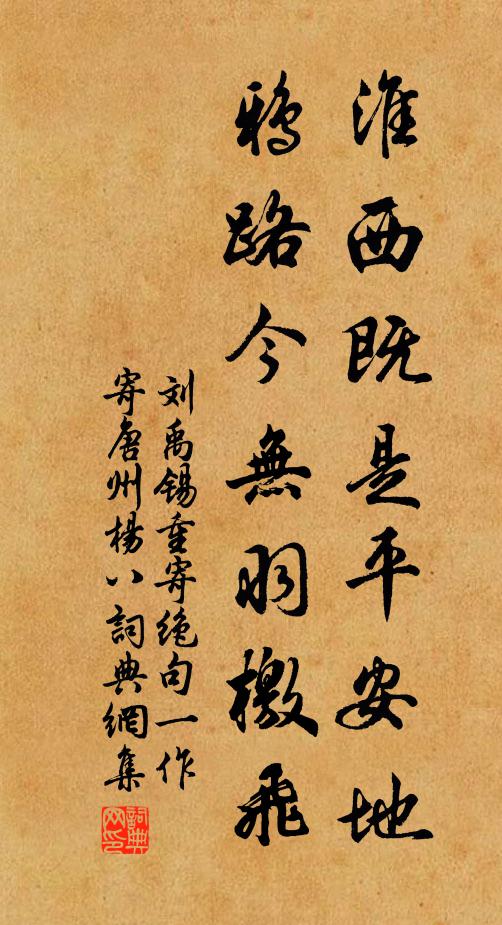 淮西既是平安地
鸦路今無羽檄飛
刘禹锡重寄绝句一作
寄唐州楊八詞典網集
詞典网印